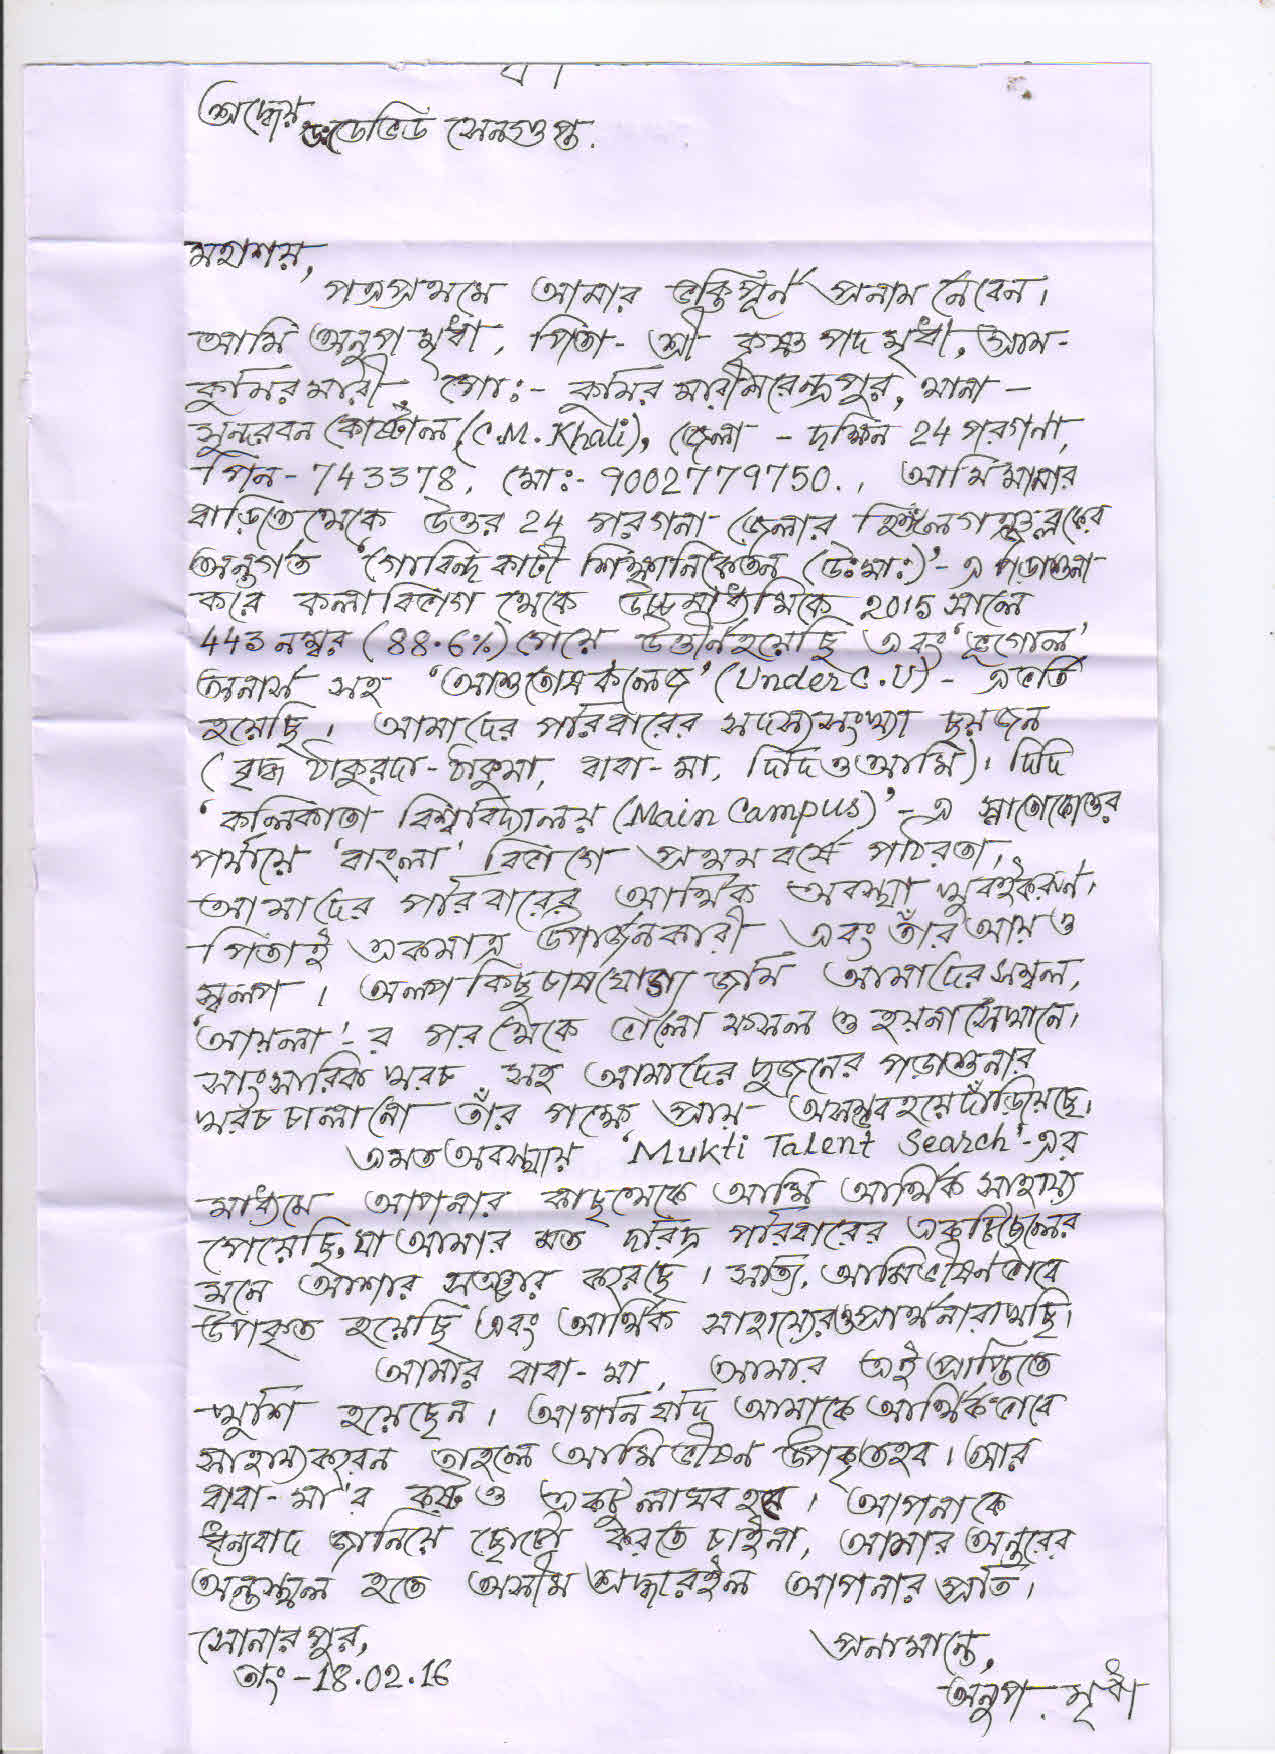 শ্রদ্ধেয় ডঃ ডেভিড সেনগুপ্ত.
মহাশয়,
পত্রপ্রথমে আমার ভক্তিপূর্ন প্রনাম নেবেন।
আমি অনুপ মৃধা, পিতা- শ্রী কৃষ্ণ পদ মৃধা, গ্রাম-
কুমিরমারী, পোঃ- কুমির মারী নরেন্দ্রপুর, থানা -
সুন্দরবন কোষ্টাল (C.M. Khali), জেলা - দক্ষিন 24 পরগনা,
পিন- 743378, মোঃ- 9002779750., আমি মামার
বাড়িতে থেকে উত্তর 24 পরগনা জেলার হিঙ্গলগঞ্জ ব্লকের
অন্তর্গত 'গোবিন্দ কাটী শিক্ষানিকেতন (উঃমাঃ)'- এ পড়াশুনা
করে কলা বিভাগ থেকে উচ্চমাধ্যমিকে 2015 সালে
443 নম্বর (88.6%) পেয়ে উত্তীর্ন হয়েছি এবং 'ভূগোল'
অনার্স সহ 'আশুতোষ কলেজ' (Under C.U) - এ ভর্তি
হয়েছি। আমাদের পরিবারের সদস্যসংখ্যা ছয়জন
(বৃদ্ধ ঠাকুরদা-ঠাকুমা, বাবা-মা, দিদি ও আমি)। দিদি
'কলিকাতা বিশ্ববিদ্যালয় (Main Campus)'- এ স্নাতোকোত্তর
পর্যায়ে 'বাংলা' বিভাগে প্রথম বর্ষে পাঠরতা,
আমাদের পরিবারের আর্থিক অবস্থা খুবই করুন।
পিতাই একমাত্র উপার্জনকারী এবং তাঁর আয় ও
স্বল্প। অল্প কিছু চাষযোগ্য জমি আমাদের সম্বল,
'আয়লা'-র পর থেকে ভালো ফসল ও হয়না সেখানে।
সাংসারিক খরচ সহ আমাদের দুজনের পড়াশুনার
খরচ চালানো তাঁর পক্ষে প্রায় অসম্ভব হয়ে দাঁড়িয়েছে।
এমত অবস্থায় 'Mukti Talent Search'-এর
মাধ্যমে আপনার কাছ থেকে আমি আর্থিক সাহায্য
পেয়েছি, যা আমার মত দরিদ্র পরিবারের একটি ছেলের
মনে আশার সঞ্চার করেছে। সত্যি, আমি ভীষন ভাবে
উপকৃত হয়েছি এবং আর্থিক সাহায্যের ও প্রার্থনা রাখছি।
আমার বাবা-মা, আমার এই প্রাপ্তিতে
খুশি হয়েছেন। আপনি যদি আমাকে আর্থিকভাবে
সাহায্য করেন তাহলে আমি ভীষন উপকৃত হব। আর
বাবা-মা'র কষ্ট ও একটু লাঘব হবে। আপনাকে
ধন্যবাদ জানিয়ে ছোটো করতে চাইনা, আমার অন্তরের
অন্তস্থল হতে অসীম শ্রদ্ধা রইল আপনার প্রতি।
সোনারপুর, প্রনামান্তে,
তাং -18.02.16 অনুপ মৃধা